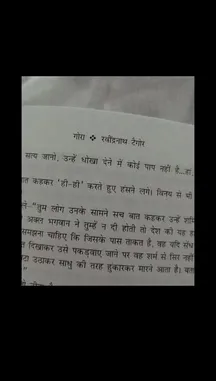 गोरा ❖ रबीन्द्रनाथ टैगोर
सत्य जानो, उन्हें धोखा देने में कोई पाप नहीं है...हा,
कहकर 'ही-ही' करते हुए हंसने लगे। विनय से भी
"तुम लोग उनके सामने सच बात कहकर उन्हें
अक्ल भगवान ने तुम्हें न दी होती तो देश को यह
समझना चाहिए कि जिसके पास ताकत है, वह यदि
दिखाकर उसे पकड़वाए जाने पर वह शर्म से सिर नहीं
उठाकर साधु की तरह हुंकारकर मारने आता है।